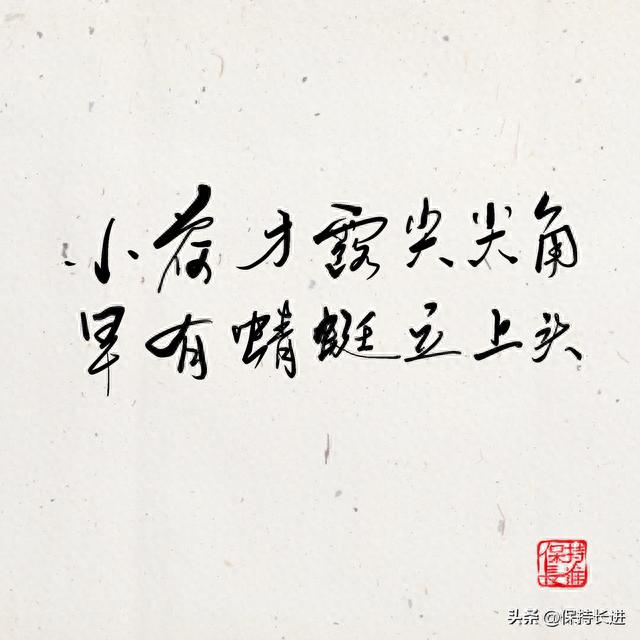 小荷才露尖尖角
早有蜻蜓立上头
保持长进
头条 @保持长进